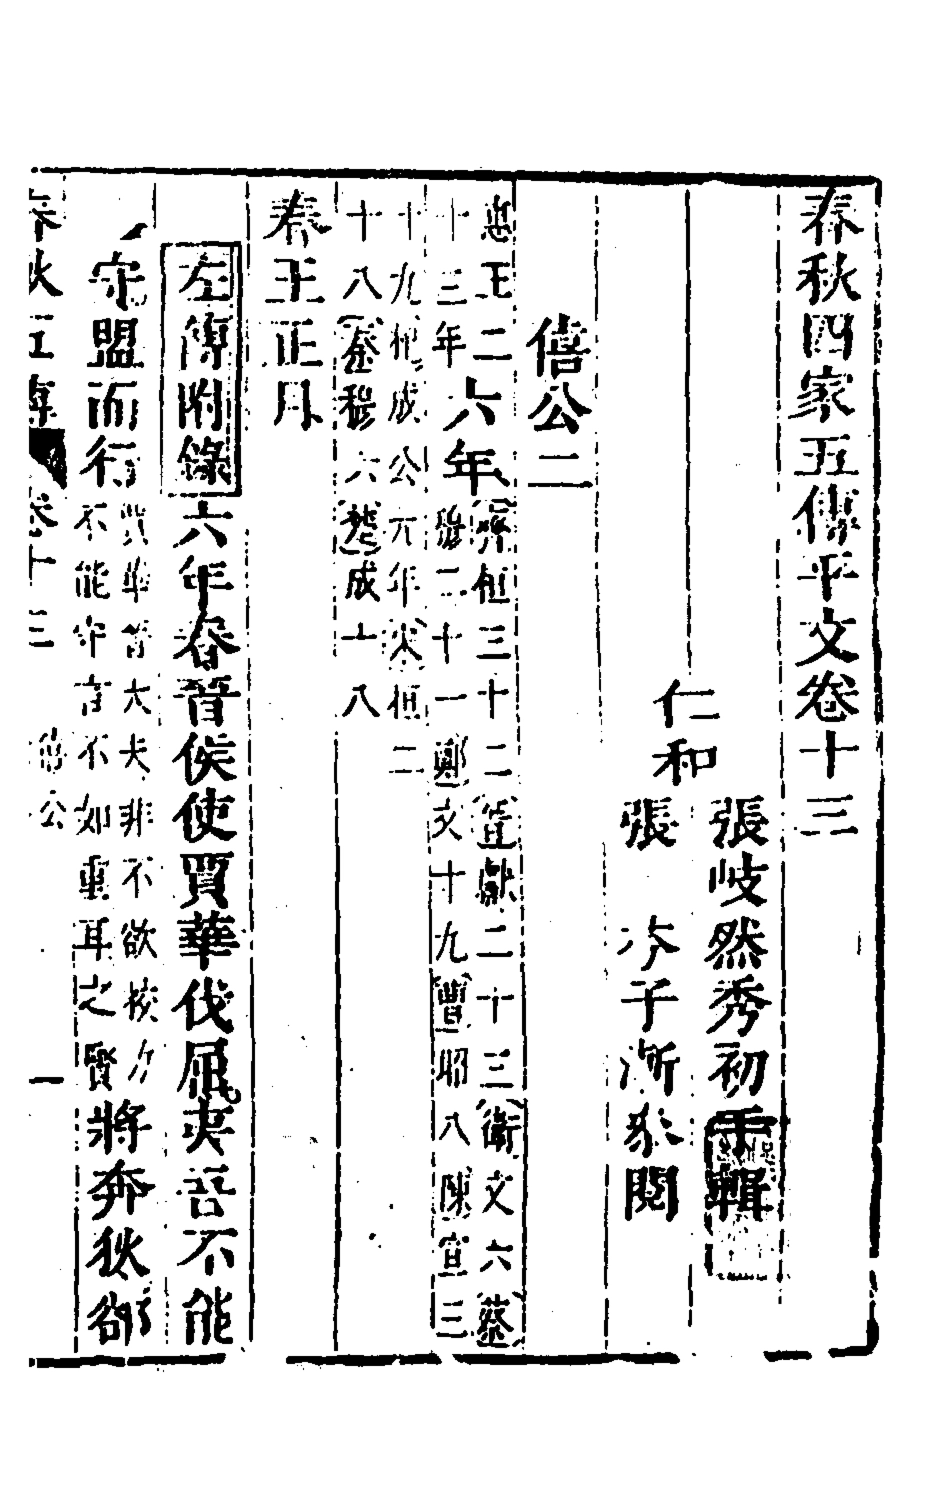 春秋四家五傳平文卷十三
仁和
張岐然秀初手輯
張芬子漸參閱
僖公二
惠王二十三年
六年
齊桓三十二晉獻二十三衛文六蔡
穆二十一鄭文十九曹昭八陳宣三
十九杞成公元年宋桓二
十八秦穆六楚成十八
春王正月
左傳附錄六年春晉侯使賈華伐屈夷吾不能
守盟而行
賈華晉大夫非不欲校力
不能守言不如重耳之賢
將奔狄郤
春秋五傳卷十三
僖公
一